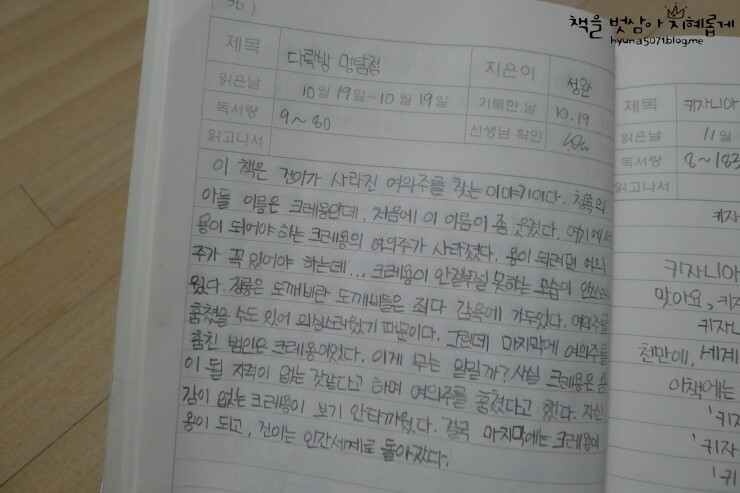 책을 벗삼아 지혜롭게
hyuna5071.blog.me
(36)
제목 다락방 명탐정 지은이 성완
읽은날 10월 19일~10월 19일 기록한 날 10.19
독서량 9~80 선생님 확인
읽고나서
이 책은 건이가 사라진 여의주를 찾는 이야기이다. 청룡의
아들 이름은 크레용인데, 처음에 이 이름이 좀 웃겼다. 여기에서
용이 되어야 하는 크레용의 여의주가 사라졌다. 용이 되려면 여의
주가 꼭 있어야 하는데... 크레용이 안절부절 못하는 모습이 안쓰러
웠다. 청룡은 도깨비란 도깨비들은 죄다 감옥에 가두었다. 여의주를
훔쳤을 수도 있어 의심스러웠기 때문이다. 그런데 마지막에 여의주를
훔친 범인은 크레용이었다. 이게 무슨 일일까? 사실 크레용은 용
이 될 자격이 없는 것같다고 하며 여의주를 훔쳤다고 했다. 자신
감이 없는 크레용이 보기 안타까웠다. 결국 마지막에는 크레용이
용이 되고, 건이는 인간세계로 돌아갔다.
제목 키자니아
읽은날 11월
독서량 8~183
읽고나서
키자
키자니아
맞아요, 키자
키자니
천만에, 세계
이책에는
'키자
'키자
'키